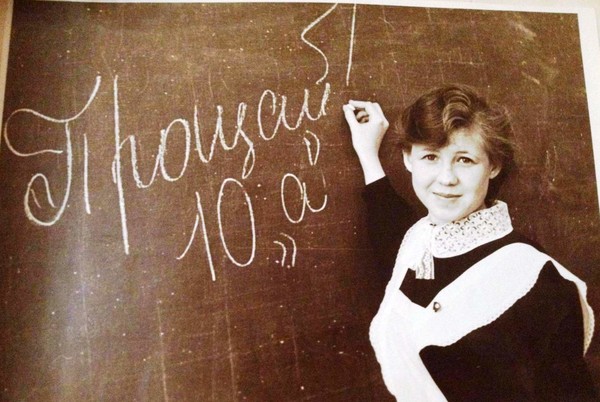 Прощай!
10 „а”